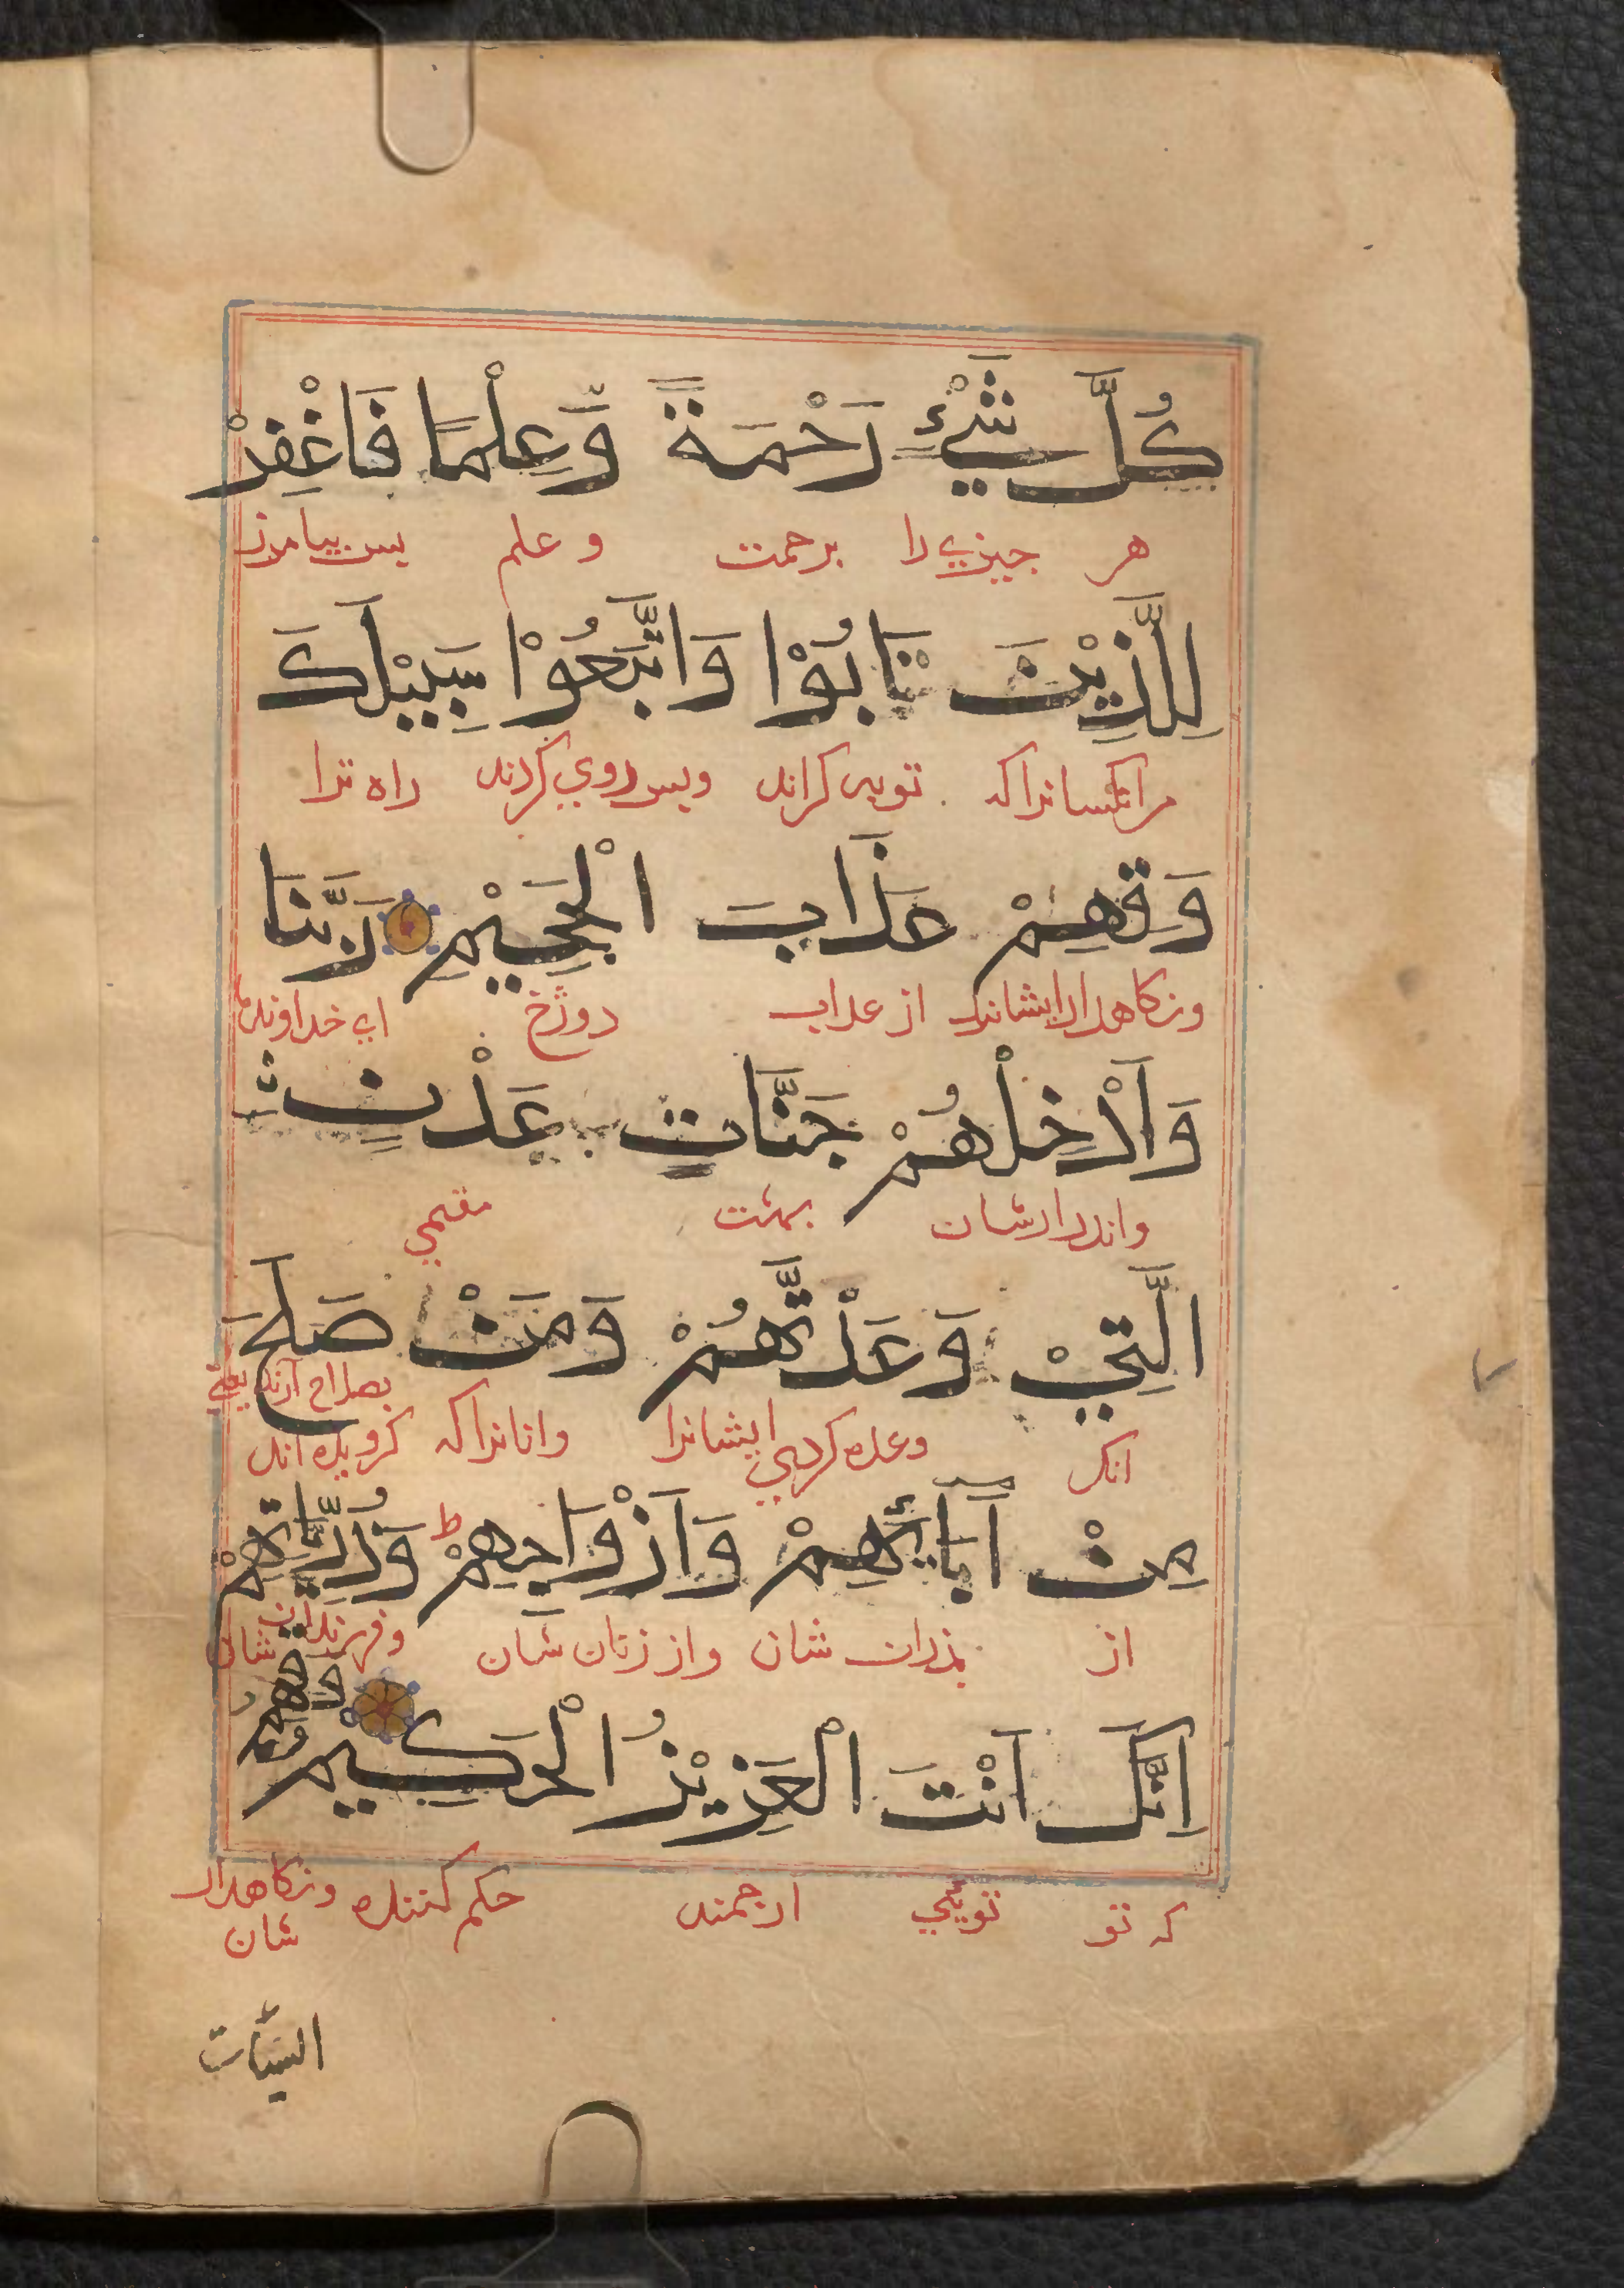 كُلَّ شَيْءٍ رَحْمَةً وَّعِلْمًا فَاغْفِرْ
هر جيزي را برحمت و علم بس بيامرز
لِلَّذِيْنَ تَابُوْا وَاتَّبَعُوْا سَبِيْلَكَ
مرانكسانراكه توبه كراند وبس روي كردند راه ترا
وَقِهِمْ عَذَابَ الْجَحِيْمِ رَبَّنَا
ونكاهدار ايشانرا از عداب دوزخ اي خداوند ما
وَاَدْخِلْهُمْ جَنَّاتٍ عَدْنٍ
واندرارشان بهشت مقيمي
الَّتِيْ وَعَدْتَّهُمْ وَمَنْ صَلَحَ
بصلاح آرند يعني
انك وعده كردي ايشانرا وانانراكه كرويده اند
مِنْ اَبَائِهِمْ وَاَزْوَاجِهِمْ ط وَذُرِّيَّاتِهِمْ
از بذران شان واز زنان شان وفرزندان شان
اِنَّكَ اَنْتَ الْعَزِيْزُ الْحَكِيْمِ وَقِهِمُ
كه تو تويئي ارجمند حكم كننده ونكاهدار
شان
السيّات